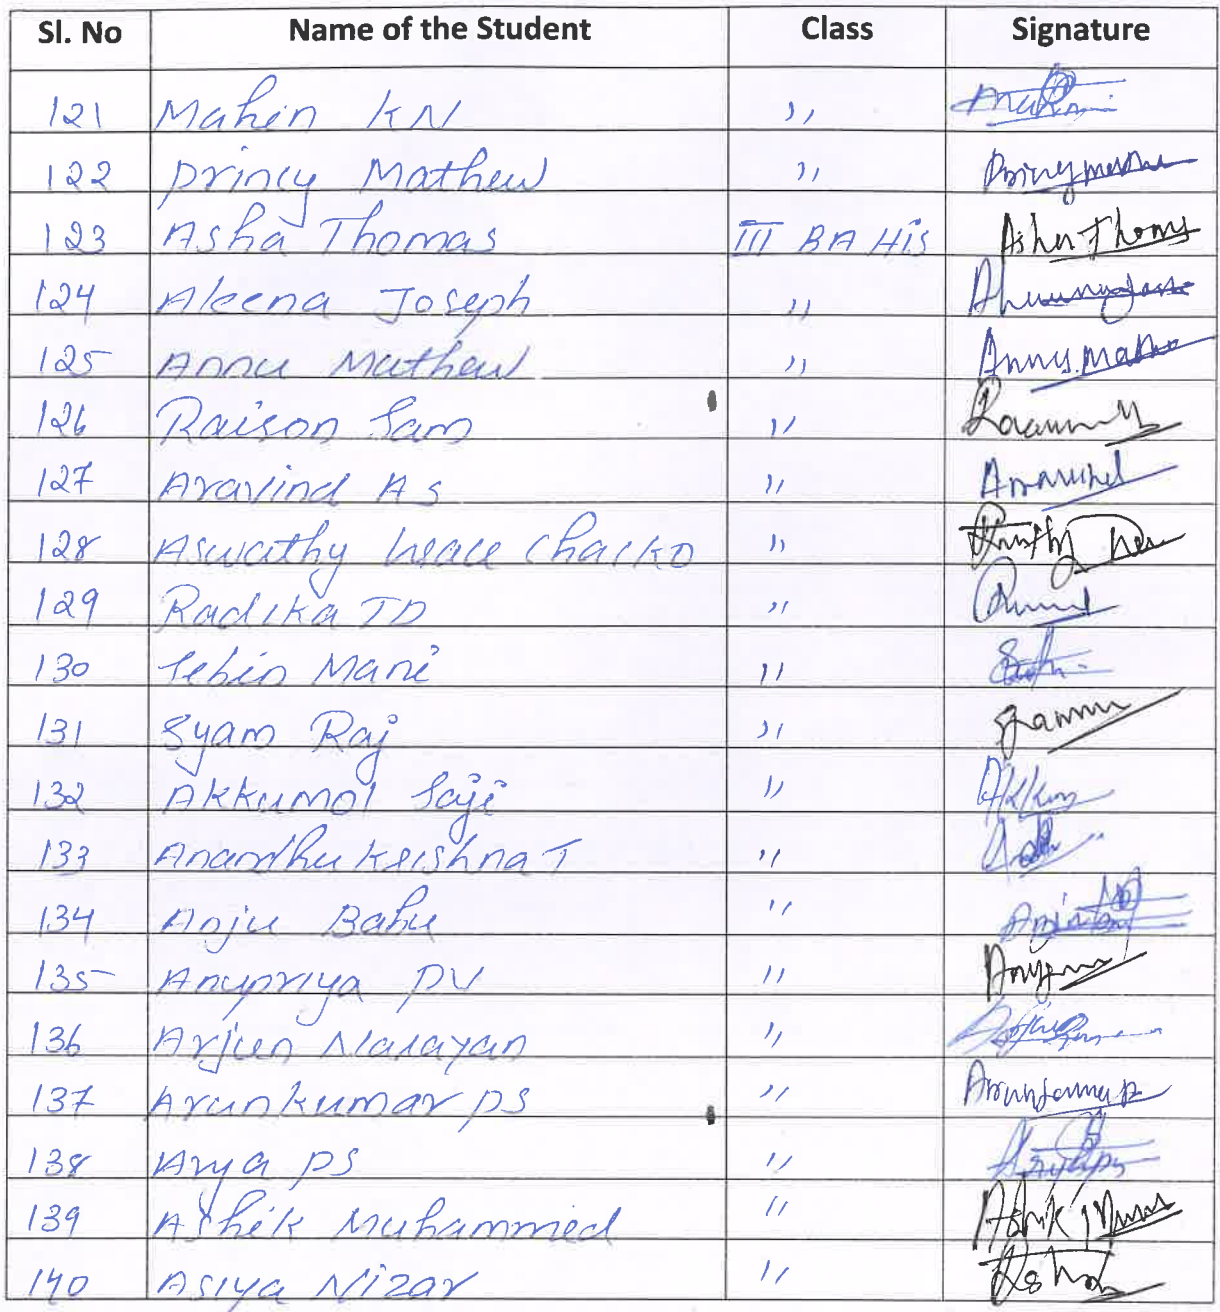 Sl. No Name of the Student Class Signature
121 Mahin KN ,,
122 princy Mathew ,,
123 Asha Thomas III BA His Asha Thomas
124 Aleena Joseph ,,
125 Annu Mathew ,,
126 Raison Sam ,,
127 Aravind A s ,, Aravind
128 Aswathy Grace Chacko ,,
129 Radika TD ,,
130 Jebin Mani ,,
131 Syam Raj ,,
132 Akkumol Saji ,,
133 Anandhu Krishna T ,,
134 Anju Babu ,,
135 Anupriya PV ,,
136 Arjun Narayan ,,
137 Arunkumar ps ,,
138 Arya ps ,,
139 Ashik Muhammed ,, Ashik
140 Asiya Nizar ,,